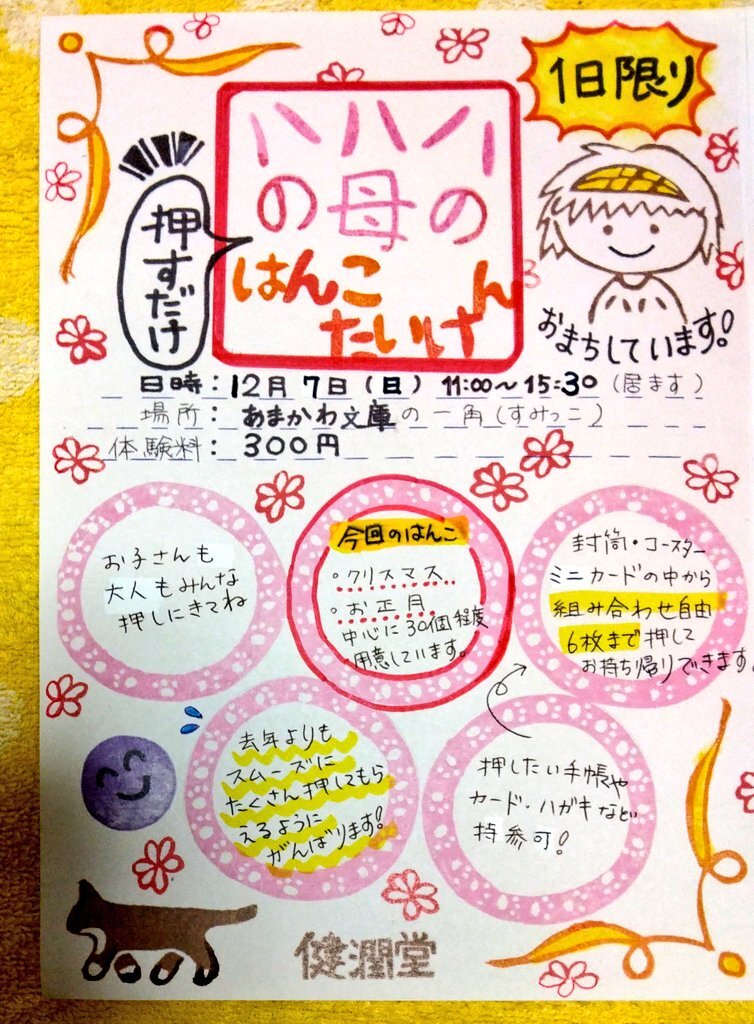 1日限り
ハハハ
の母の
はんこ
たいけん
押すだけ
おまちしています!
日時:12月7日(日) 11:00~15:30(居ます)
場所:あまかわ文庫の一角(すみっこ)
体験料:300円
お子さんも
大人もみんな
押しにきてね
今回のはんこ
・クリスマス
・お正月
中心に30個程度
用意しています。
封筒・コースター
ミニカードの中から
組み合わせ自由
6枚まで押して
お持ち帰りできます。
去年よりも
スムーズに
たくさん押してもら
えるように
がんばります!
押したい手帳や
カード・ハガキなど
持参可!
健潤堂